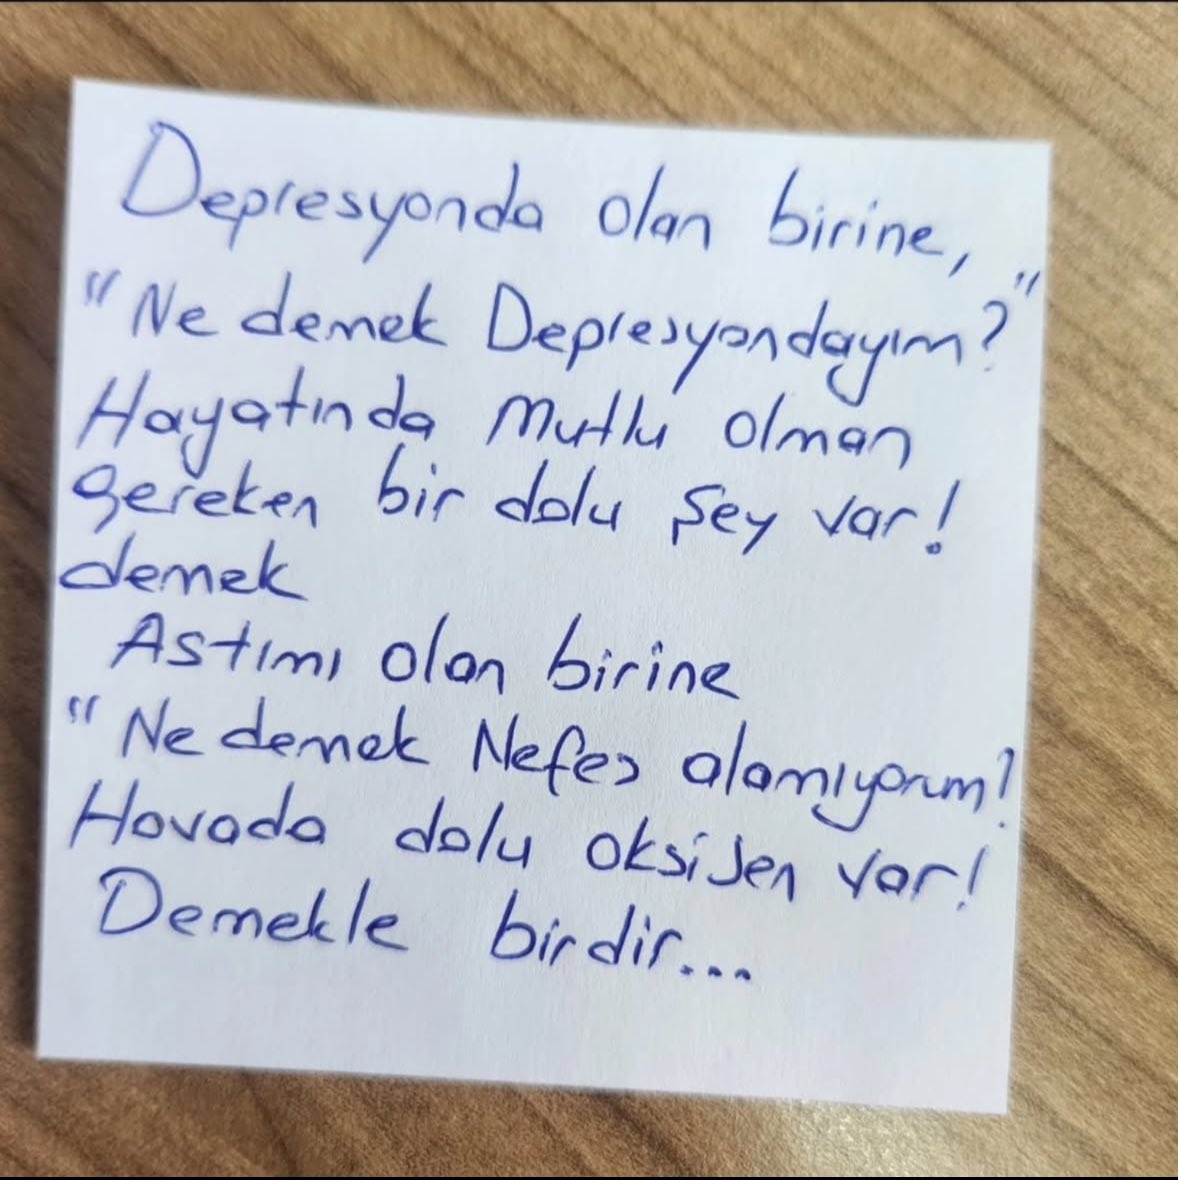 Depresyonda olan birine,
"Ne demek Depresyondayım?"
Hayatında mutlu olman
gereken bir dolu şey var!
demek
Astımı olan birine
"Ne demek Nefes alamıyorum?
Havada dolu oksijen var!
Demekle birdir...